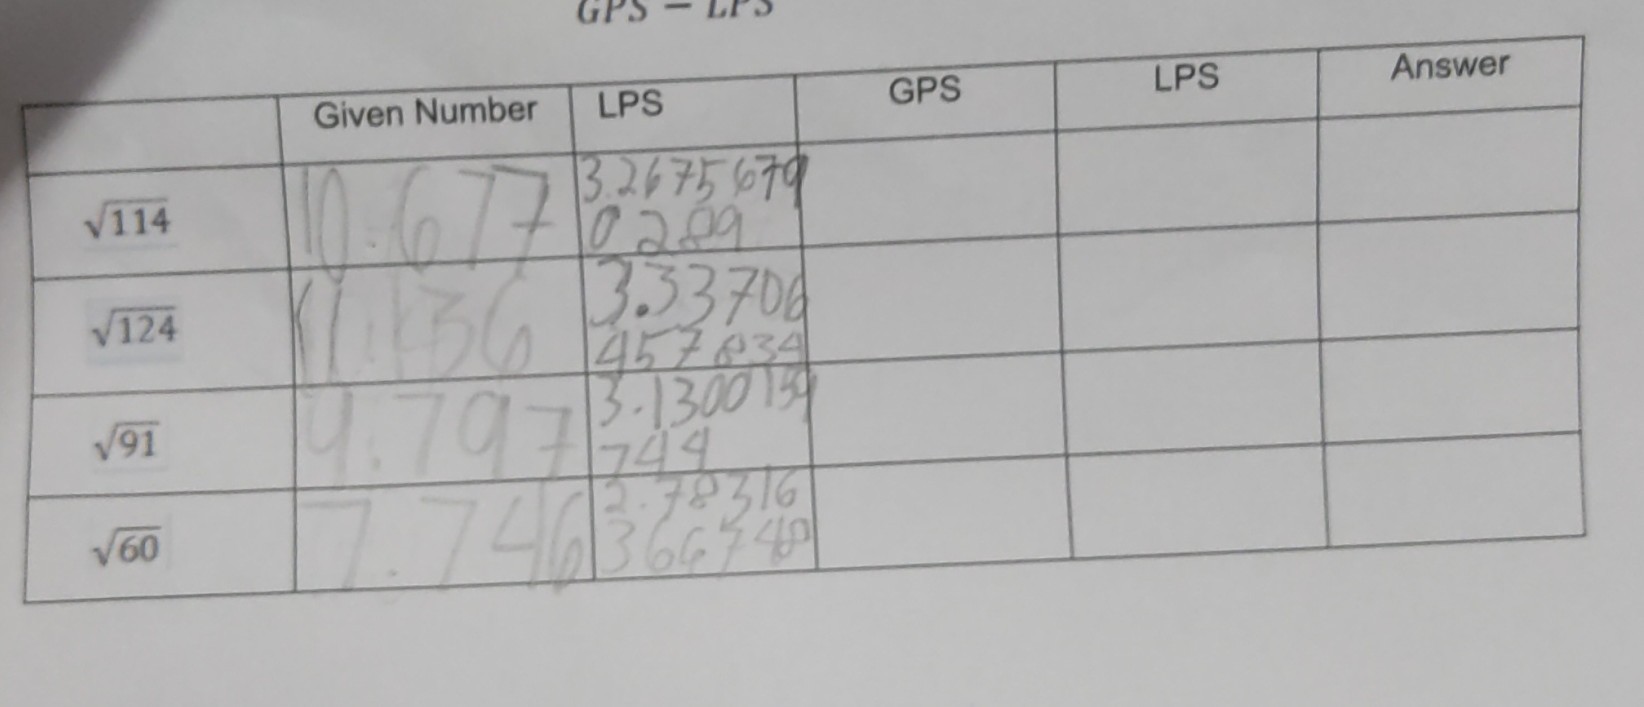 GPS – LPS
Given Number LPS GPS LPS Answer
√114 10.677 3.2675679
0289
√124 11.136 3.33706
457834
√91 9.797 3.1300159
744
√60 7.746 2.78316
366748